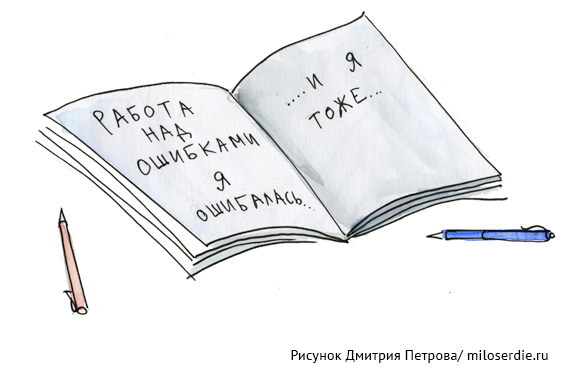 РАБОТА
НАД
ОШИБКАМИ
Я
ОШИБАЛАСЬ...
.....И Я
ТОЖЕ...
Рисунок Дмитрия Петрова/ miloserdie.ru